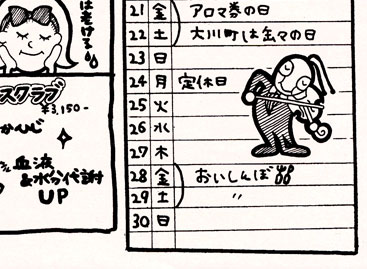 は老ける
スクラブ
¥3,150-
かんじ
血液
&水分代謝
UP
21 金 アロマ券の日
22 土 大川町は缶々の日
23 日
24 月 定休日
25 火
26 水
27 木
28 金 おいしんぼ
29 土 〃
30 日